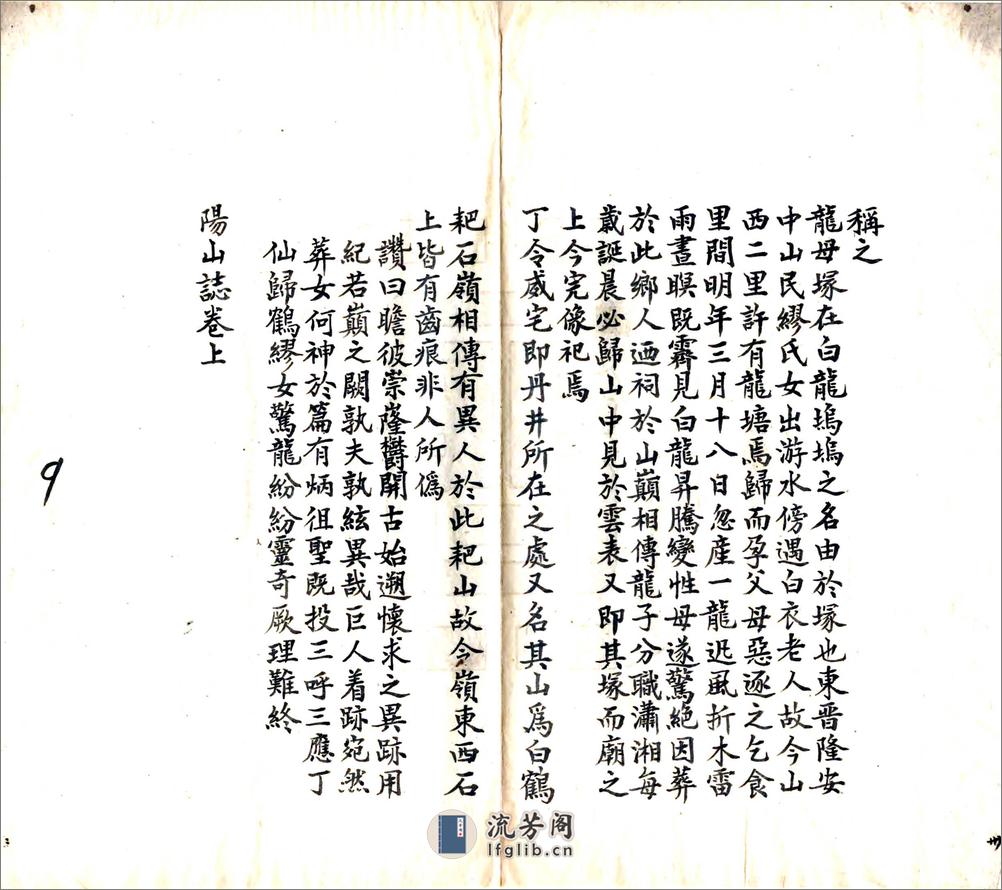 稱之
龍母塚在白龍塢塢之名由於塚也東晋隆安
中山民繆氏女出游水傍遇白衣老人故今山
西二里許有龍塘焉歸而孕父母惡逐之乞食
里間明年三月十八日忽産一龍迅風折木雷
雨晝暝既霽見白龍昇騰變性母遂驚絕因葬
於此鄉人迺祠於山巔相傳龍子分職瀟湘每
歲誕晨必歸山中見於雲表又即其塚而廟之
上今完像祀焉
丁令威宅即丹井所在之處又名其山為白鶴
耙石嶺相傳有異人於此耙山故令嶺東西石
上皆有齒痕非人所僞
讚曰瞻彼崇隆欝開古始遡懷求之異跡用
紀若巔之闕孰夫孰絃異哉巨人着跡宛然
葬女何神於篇有炳徂聖既投三呼三應丁
仙歸鶴繆女驚龍紛紛靈奇厥理難終
陽山誌卷上
9
流芳阁
lfglib.cn
卅